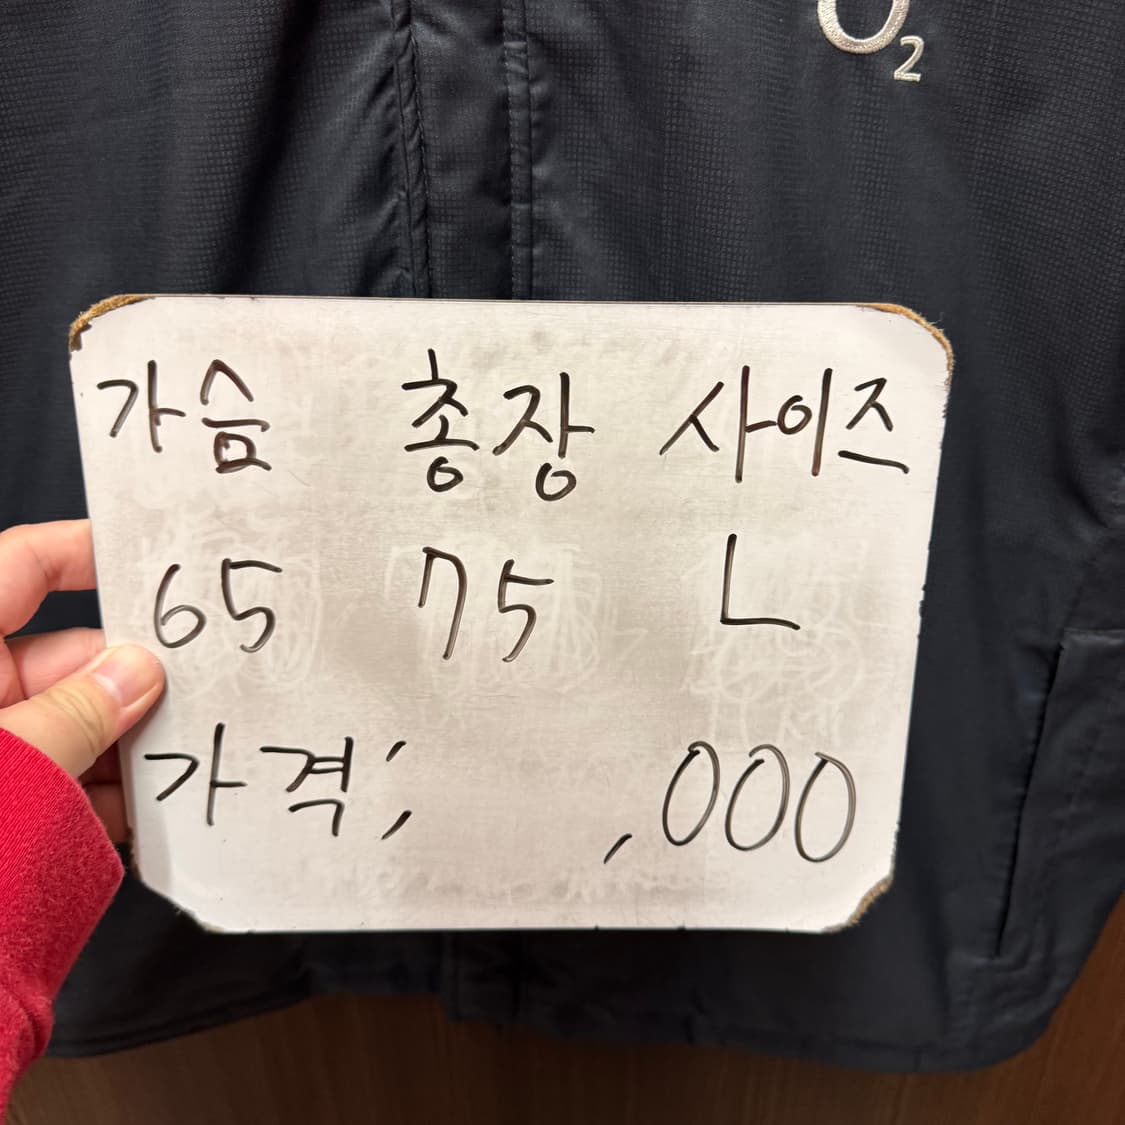 O2
가슴 총장 사이즈
65 75 L
가격; ,000